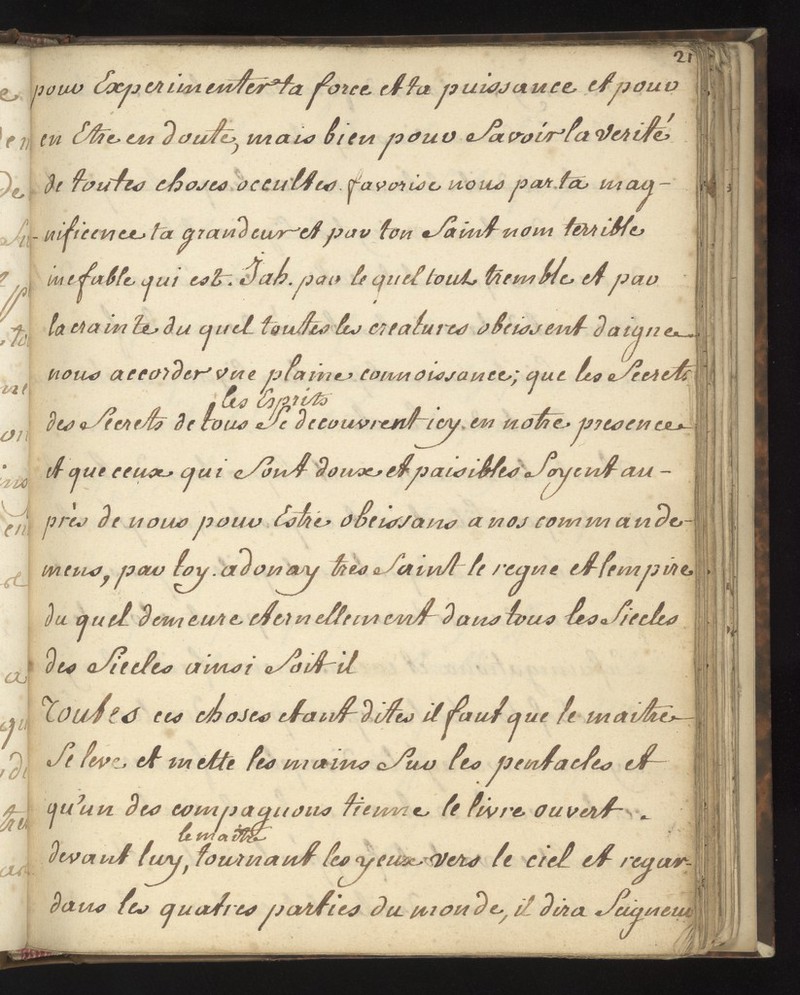 21
pour Experimenter ta force et ta puissance et pour
en Etre en doute, mais bien pour Savoir la verité
de toutes choses occultes. favorise nous par ta mag-
nificence ta grandeur et par ton Saint nom terrible
inefable qui est. Jah. par le quel tout tremble et par
la crainte du quel toutes les creatures obeissent daigne
nous accorder vne plaine connoissance; que les Secrets
les Esprits
des Secrets de tous Se decouvrent icy en notre presence
et que ceux qui Sont doux et paisibles Soyent au-
près de nous pour Estre obeissans a nos commande-
mens, par toy. adonay tres Saint le regne et lempire
du quel demeure eternellement dans tous les Siecles
des Siecles ainsi Soit il
Toutes ces choses etant dites il faut que le maitre
Se leve et mette les mains Sur les pentacles et
qu'un des compagnons tienne le livre ouvert .
le maitre
devant luy, tournant les yeux vers le ciel et regar-
dans les quatres parties du monde, il dira Seigneur